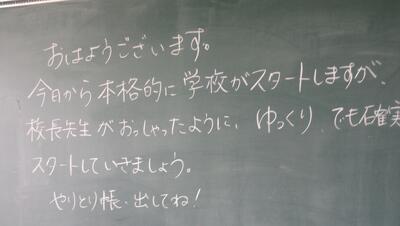 おはようございます。
今日から本格的に学校がスタートしますが、
校長先生がおっしゃったように、ゆっくり でも確実
スタートしていきましょう。
やりとり帳、出してね！